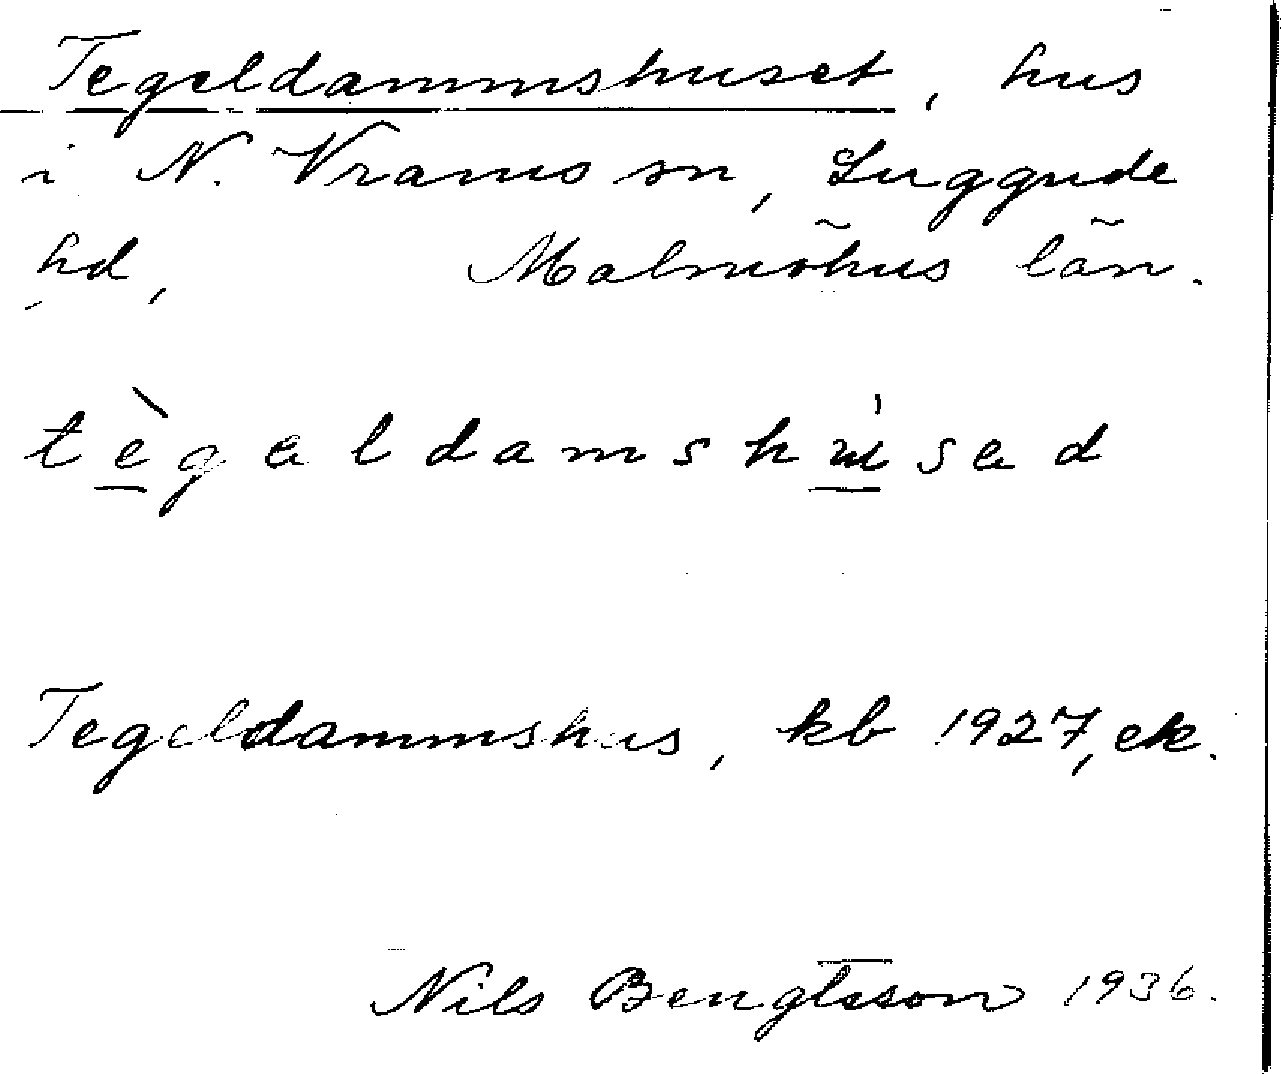 Tegeldammshuset, hus
i N. Vrams sn, Luggude
hd, Malmöhus län.
tègaldamshu̍sad
Tegeldammshus, kb 1927, ek.
Nils Bengtsson 1936.